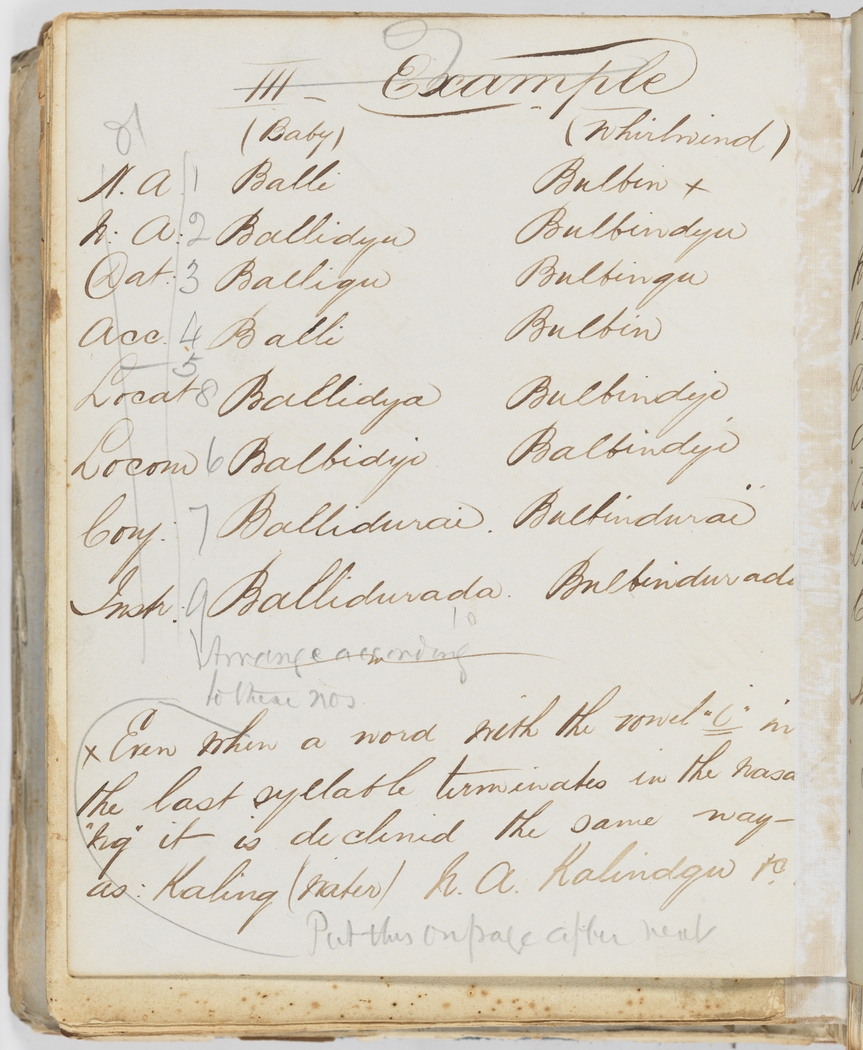 III – Example
(Baby) (Whirlwind)
N. A 1 Balli Bulbin x
N. A: 2 Ballidyu Bulbindyu
Dat: 3 Balligu Bulbingu
Acc. 4 Balli Bulbin
5
Locat 8 Ballidya Bulbindyi
Locom 6 Balbidyi Balbindyi
Conj: 7 Ballidurai. Bulbinduraï
Instr. 9 Ballidurada. Bulbindurada
10
Arrange according
to these nos
x Even when a word with the vowel "i" in
the last syllable terminates in the nasa
"ng" it is declined the same way–
as: Kaling (water) N. A. Kalindgu &c.
Put this on page after next